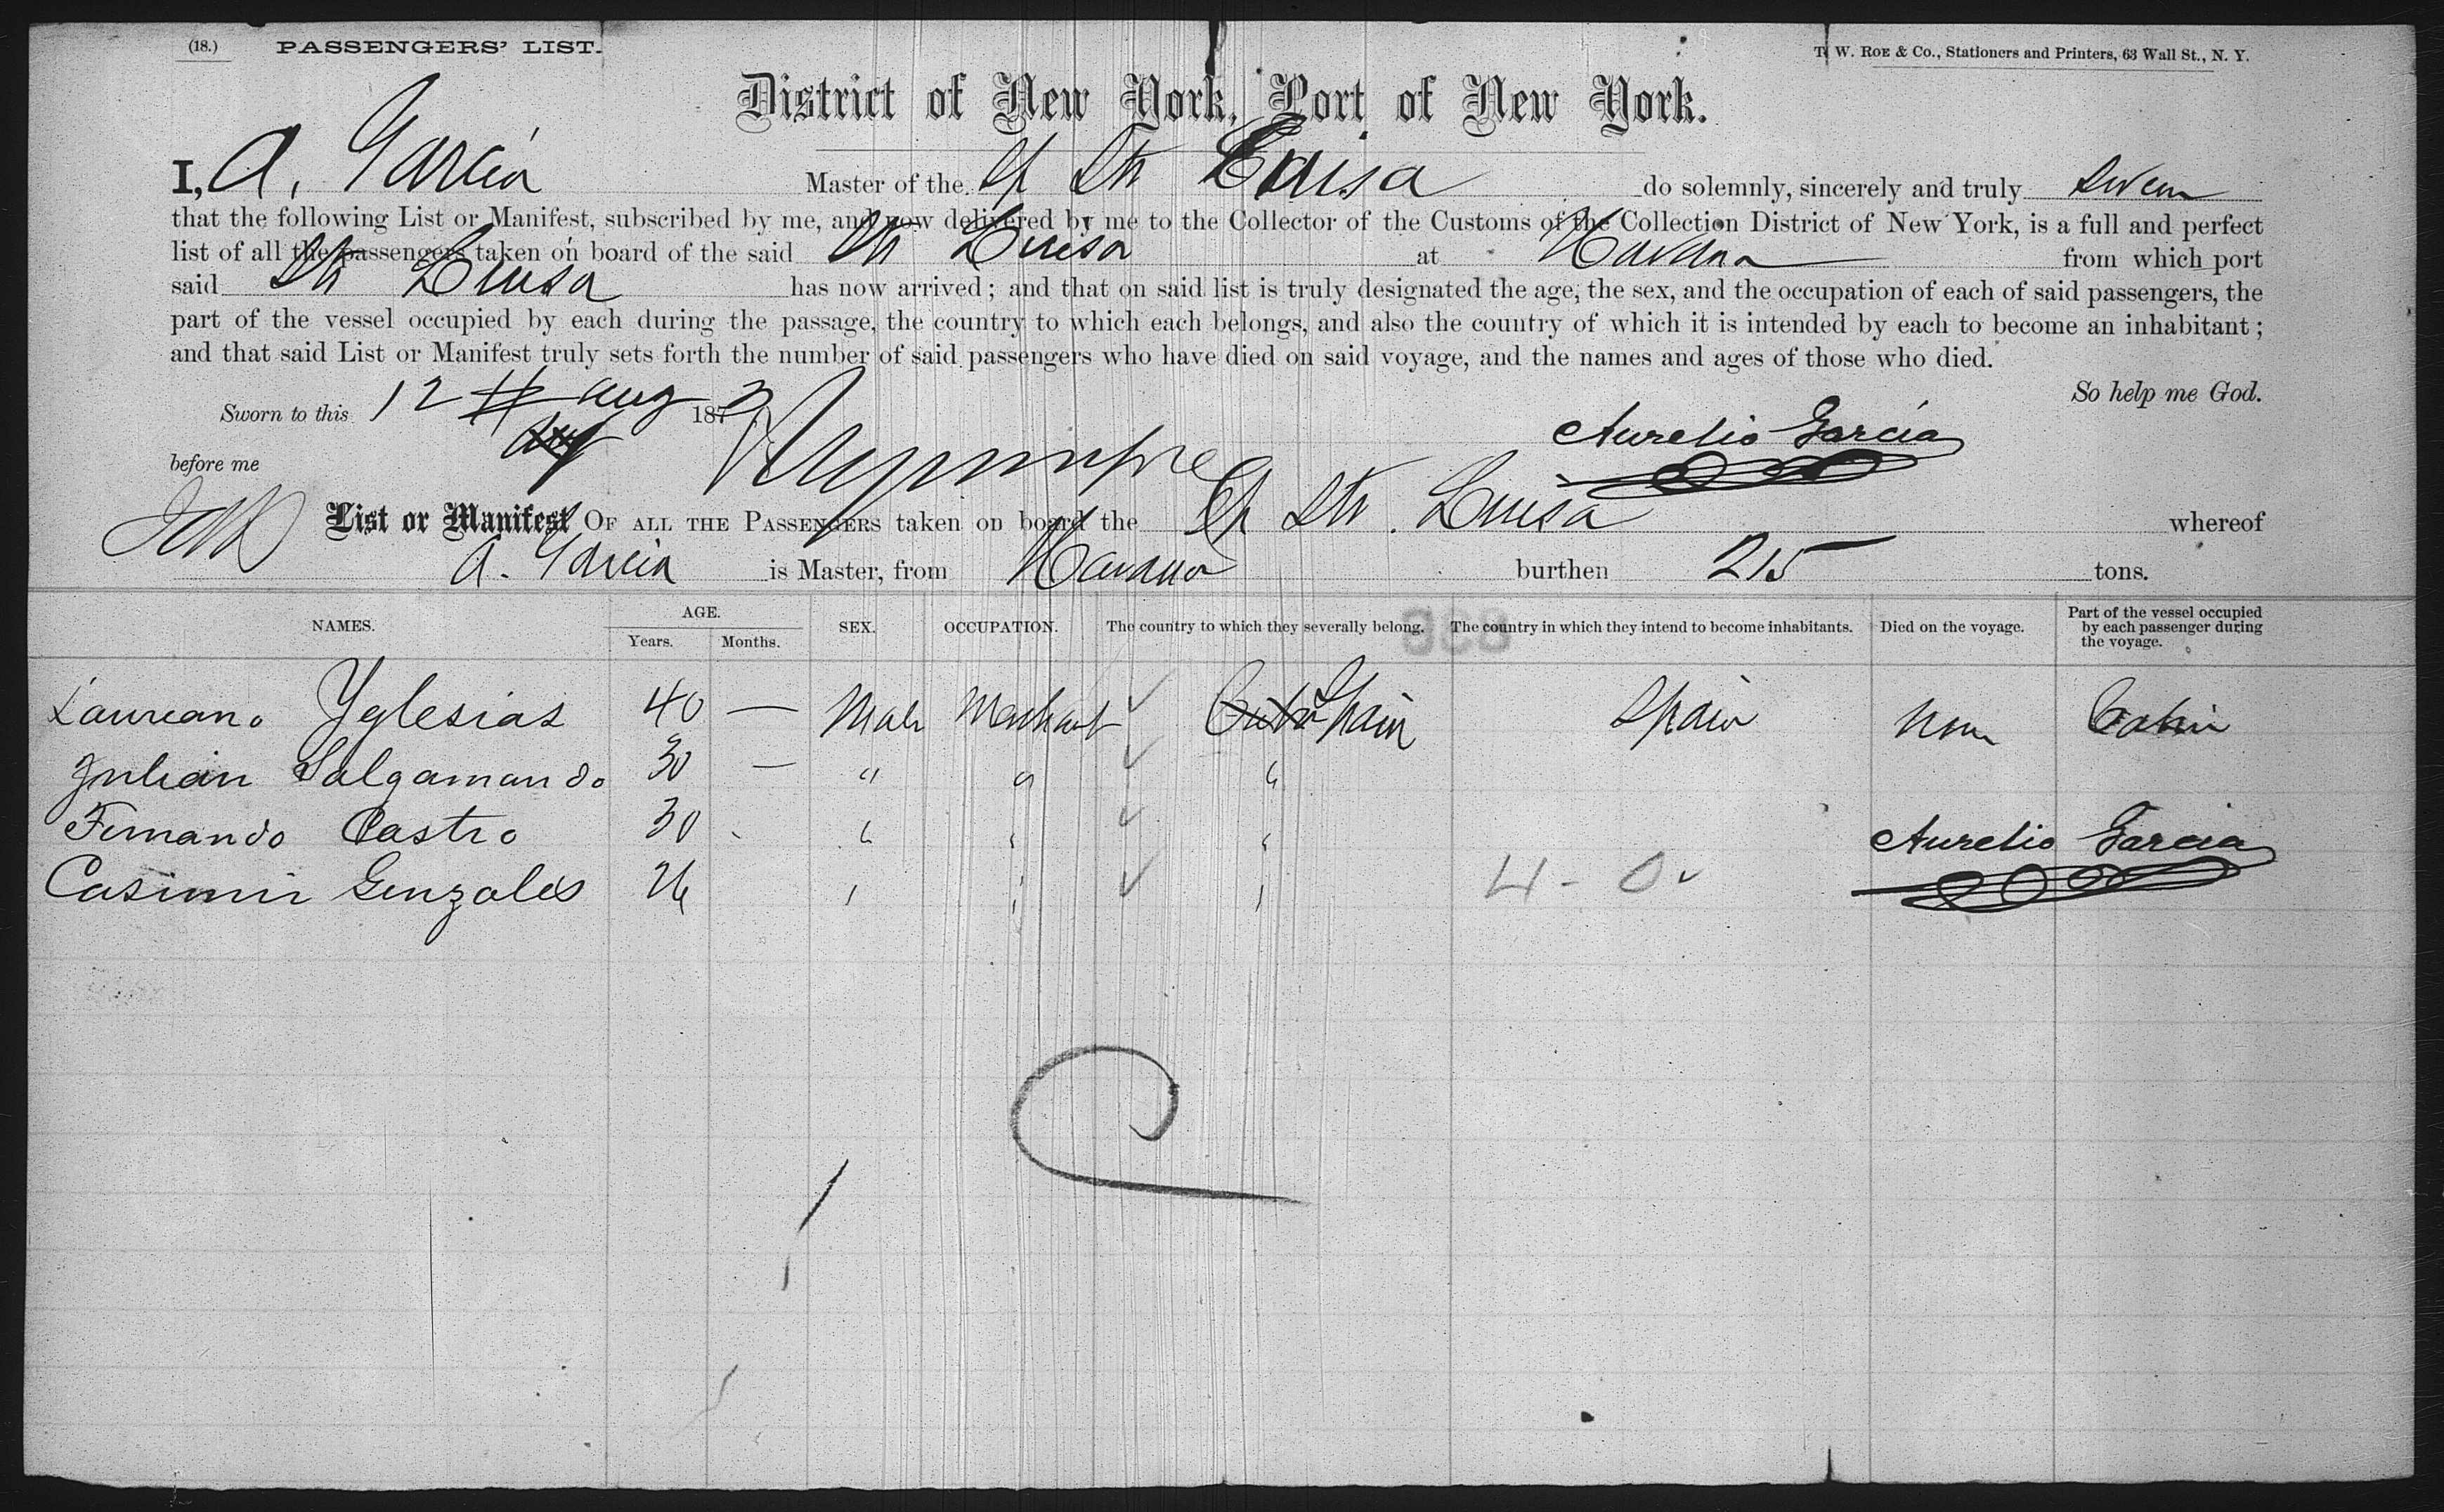 (18.) PASSENGERS' LIST.
T. W. ROE & Co., Stationers and Printers, 63 Wall St., N. Y.
District of New York, Port of New York.
I, A. Garcia Master of the Sp Str Luisa do solemnly, sincerely and truly swear
that the following List or Manifest, subscribed by me, and now delivered by me to the Collector of the Customs of the Collection District of New York, is a full and perfect
list of all the passengers taken on board of the said Str Luisa at Havana from which port
said Str Luisa has now arrived; and that on said list is truly designated the age, the sex, and the occupation of each of said passengers, the
part of the vessel occupied by each during the passage, the country to which each belongs, and also the country of which it is intended by each to become an inhabitant;
and that said List or Manifest truly sets forth the number of said passengers who have died on said voyage, and the names and ages of those who died.
So help me God.
Sworn to this 12th Aug 187
Aurelio Garcia
before me
List or Manifest OF ALL THE PASSENGERS taken on board the Sp Str. Luisa whereof
A. Garcia is Master, from Havana burthen 215 tons.
NAMES. AGE. Years. Months. SEX. OCCUPATION. The country to which they severally belong. The country in which they intend to become inhabitants. Died on the voyage. Part of the vessel occupied by each passenger during the voyage.
Laureano Yglesias 40 — Male Merchant Cuba Spain Spain None Cabin
Julian Salgamando 30 — " " "
Fernando Castro 30 " " "
Aurelio Garcia
Casimir Gonzales 26 " " " 4 - 0